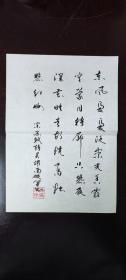 东风袅袅泛崇光香雾
空蒙月转廊只恐夜
深花睡去故烧高烛
照红妆 宋苏轼诗